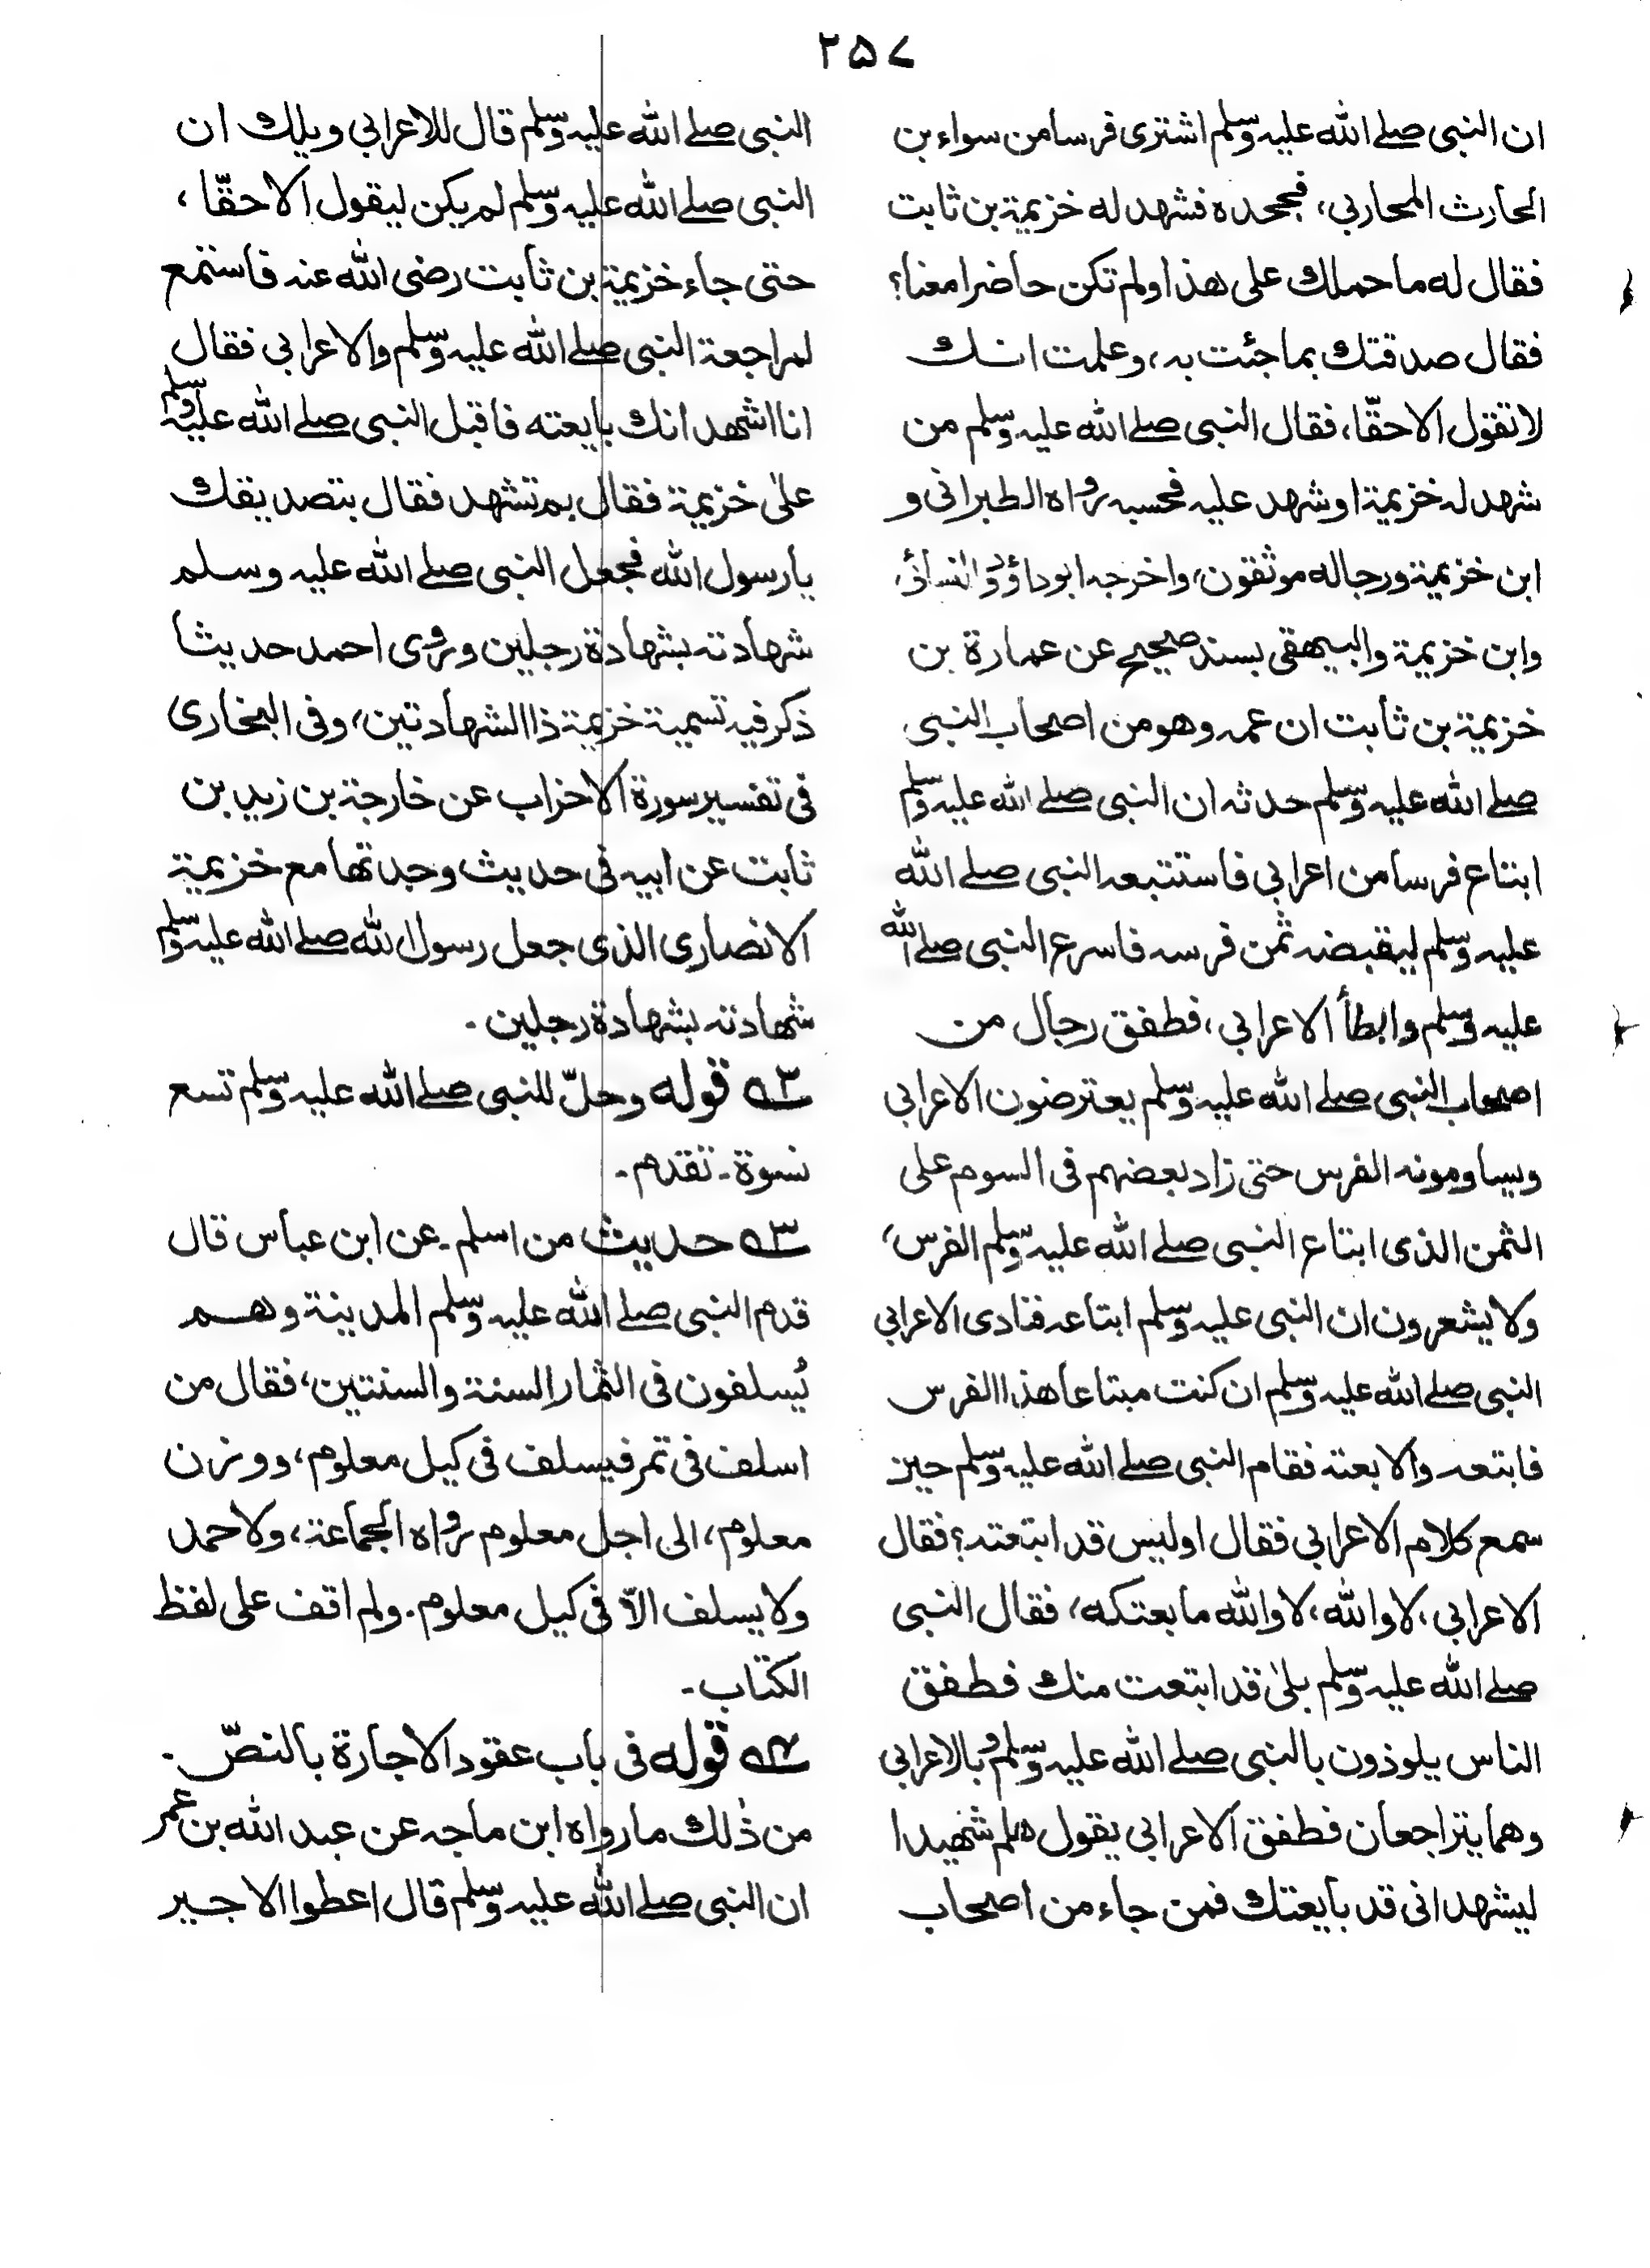 ۲۵۷
ان النبى صلے الله عليه وسلم اشترى فرسا من سواء بن
الحارث المحاربى، فجحده فشهد له خزيمة بن ثابت
فقال له ما حملك على هذا ولم تكن حاضرا معنا؟
فقال صدقتك بما جئت به، وعلمت انك
لا تقول الا حقّا، فقال النبى صلے الله عليه وسلم من
شهد له خزيمة او شهد عليه فحسبه رواه الطبرانى و
ابن خزيمة ورجاله موثقون، واخرجه ابوداؤد والنسائى
وابن خزيمة والبيهقى بسند صحيح عن عمارة بن
خزيمة بن ثابت ان عمه وهو من اصحاب النبى
صلے الله عليه وسلم حدثه ان النبى صلے الله عليه وسلم
ابتاع فرسا من اعرابى فاستتبعه النبى صلے الله
عليه وسلم ليقبضه ثمن فرسه فاسرع النبى صلے الله
عليه وسلم وابطأ الاعرابى، فطفق رجال من
اصحاب النبى صلے الله عليه وسلم يعترضون الاعرابى
ويساومونه الفرس حتى زاد بعضهم فى السوم على
الثمن الذى ابتاع النبى صلے الله عليه وسلم الفرس،
ولا يشعرون ان النبى عليه وسلم ابتاعه فنادى الاعرابى
النبى صلے الله عليه وسلم ان كنت مبتاعا هذا الفرس
فابتعه والا بعته فقام النبى صلے الله عليه وسلم حين
سمع كلام الاعرابى فقال اوليس قد ابتعته؟ فقال
الاعرابى، لا والله، لا والله ما بعتكه، فقال النبى
صلے الله عليه وسلم بلىٰ قد ابتعت منك فطفق
الناس يلوذون بالنبى صلے الله عليه وسلم وبالاعرابى
وهما يتراجعان فطفق الاعرابى يقول هلم شهيدا
ليشهد انى قد بايعتك فمن جاء من اصحاب
النبى صلے الله عليه وسلم قال للاعرابى ويلك ان
النبى صلے الله عليه وسلم لم يكن ليقول الا حقّا،
حتى جاء خزيمة بن ثابت رضى الله عنه فاستمع
لمراجعة النبى صلے الله عليه وسلم والاعرابى فقال
انا اشهد انك بايعته فاقبل النبى صلے الله عليه وسلم
علىٰ خزيمة فقال بم تشهد فقال بتصديقك
يا رسول الله فجعل النبى صلے الله عليه وسلم
شهادته بشهادة رجلين وروى احمد حديثا
ذكر فيه تسمية خزيمة ذا الشهادتين، وفى البخارى
فى تفسير سورة الاخزاب عن خارجة بن زيد بن
ثابت عن ابيه فى حديث وجدتها مع خزيمة
الانصارى الذى جعل رسول الله صلے الله عليه وسلم
شهادته بشهادة رجلين ۔
۲ه قوله وحلّ للنبى صلے الله عليه وسلم تسع
نسوة ۔ تقدم ۔
۳ه حديث من اسلم ۔ عن ابن عباس قال
قدم النبى صلے الله عليه وسلم المدينة وهم
يُسلفون فى الثمار السنة والسنتين، فقال من
اسلف فى تمر فيسلف فى كيل معلوم، ووزن
معلوم، الى اجل معلوم رواه الجماعة، ولاحمد
ولا يسلف الاّ فى كيل معلوم. ولم اقف على لفظ
الكتاب ۔
۴ه قوله فى باب عقود الاجارة بالنصّ ۔
من ذٰلك ما رواه ابن ماجه عن عبد الله بن عمر
ان النبى صلے الله عليه وسلم قال اعطوا الاجير